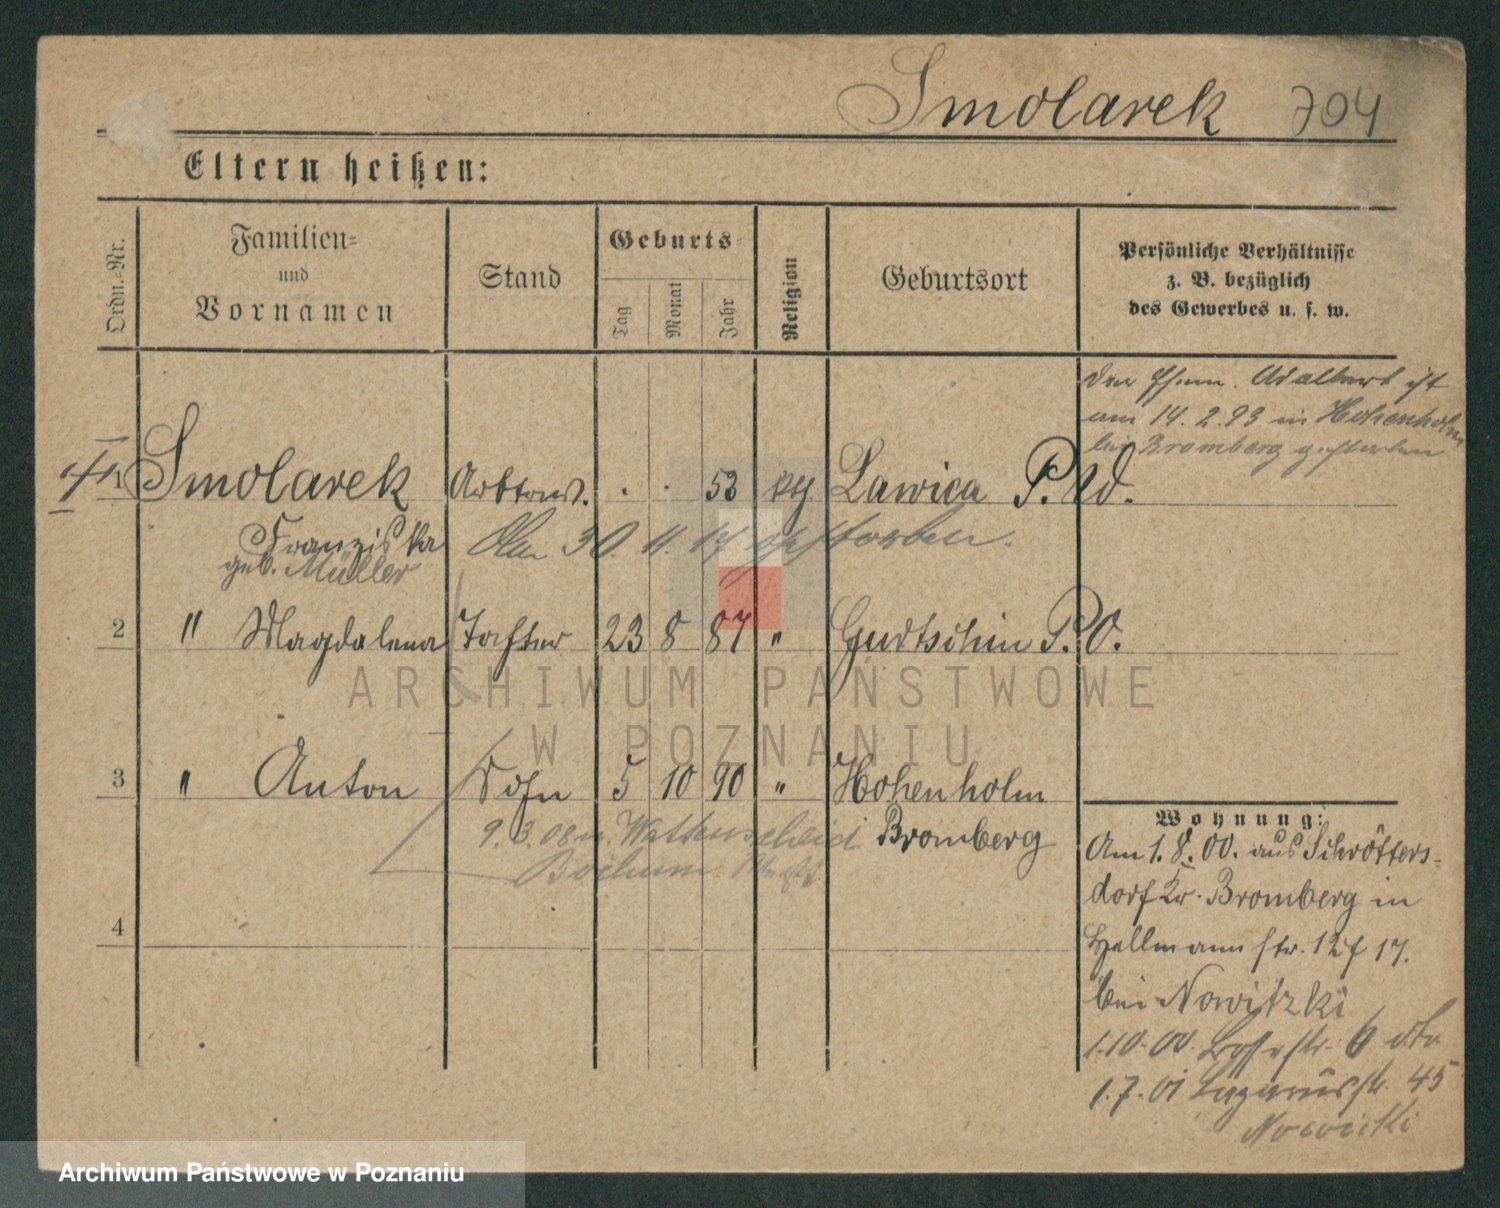 Smolarek 704
Eltern heißen:
Ordn.-Nr.
Familien-
und
Vornamen
Stand
Geburts-
Tag
Monat
Jahr
Religion
Geburtsort
Persönliche Verhältnisse
z. B. bezüglich
des Gewerbes u. s. w.
Der Ehem. Adalbert ist
am 14. 2. 93 in Hohenholm
bei Bromberg gestorben
1 Smolarek 53 kth. Lawica P. W.
Franziska
geb. Müller
30. 11. 17 gestorben.
2 " Magdalena Tochter 23 8 87 " Gurtschin P. O.
3 " Anton Sohn 5 10 90 " Hohenholm
Bromberg
9. 3. 08 n. Wattenscheid
Bochum
4
Wohnung:
Am 1. 8. 00. aus Schrötters-
dorf Kr. Bromberg in
Hellmannstr. 12 f 17.
bei Nowitzki
1.10.00. 6
1.7.01 Lazarusstr. 45
Nowicki
ARCHIWUM PAŃSTWOWE
W POZNANIU
Archiwum Państwowe w Poznaniu